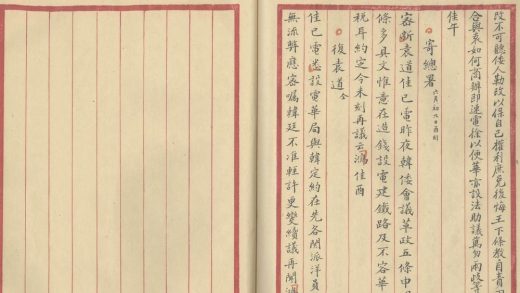 改不可聽倭人勒改以保自己權利庶免後悔王下條教自責
如何商辦即速電 以便華 設法助議萬勿兩歧等
佳午
寄總署 六月初九日酉刻
密 袁道佳巳電昨夜韓倭會議革政五條申
條多具文惟意在造錢設電建鐵路及不容華
稅耳約定今未刻再議云鴻佳酉
復袁道 仝
佳巳電悉設電華局與韓定約在先各關派洋員
無流弊應密囑韓廷不准輕許更變續議再聞鴻